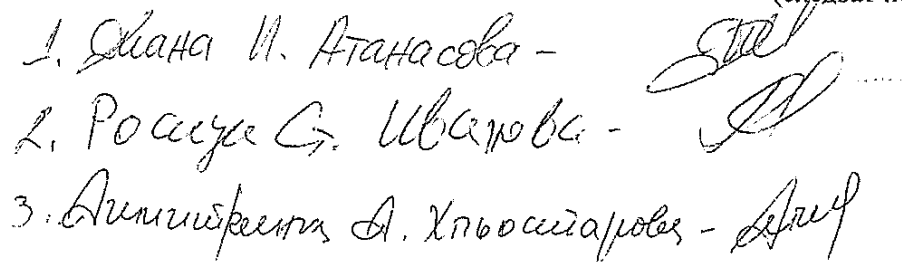 1. Диана И. Атанасова -
2. Росица Ст. Иванова -
3. Димитринка А. -